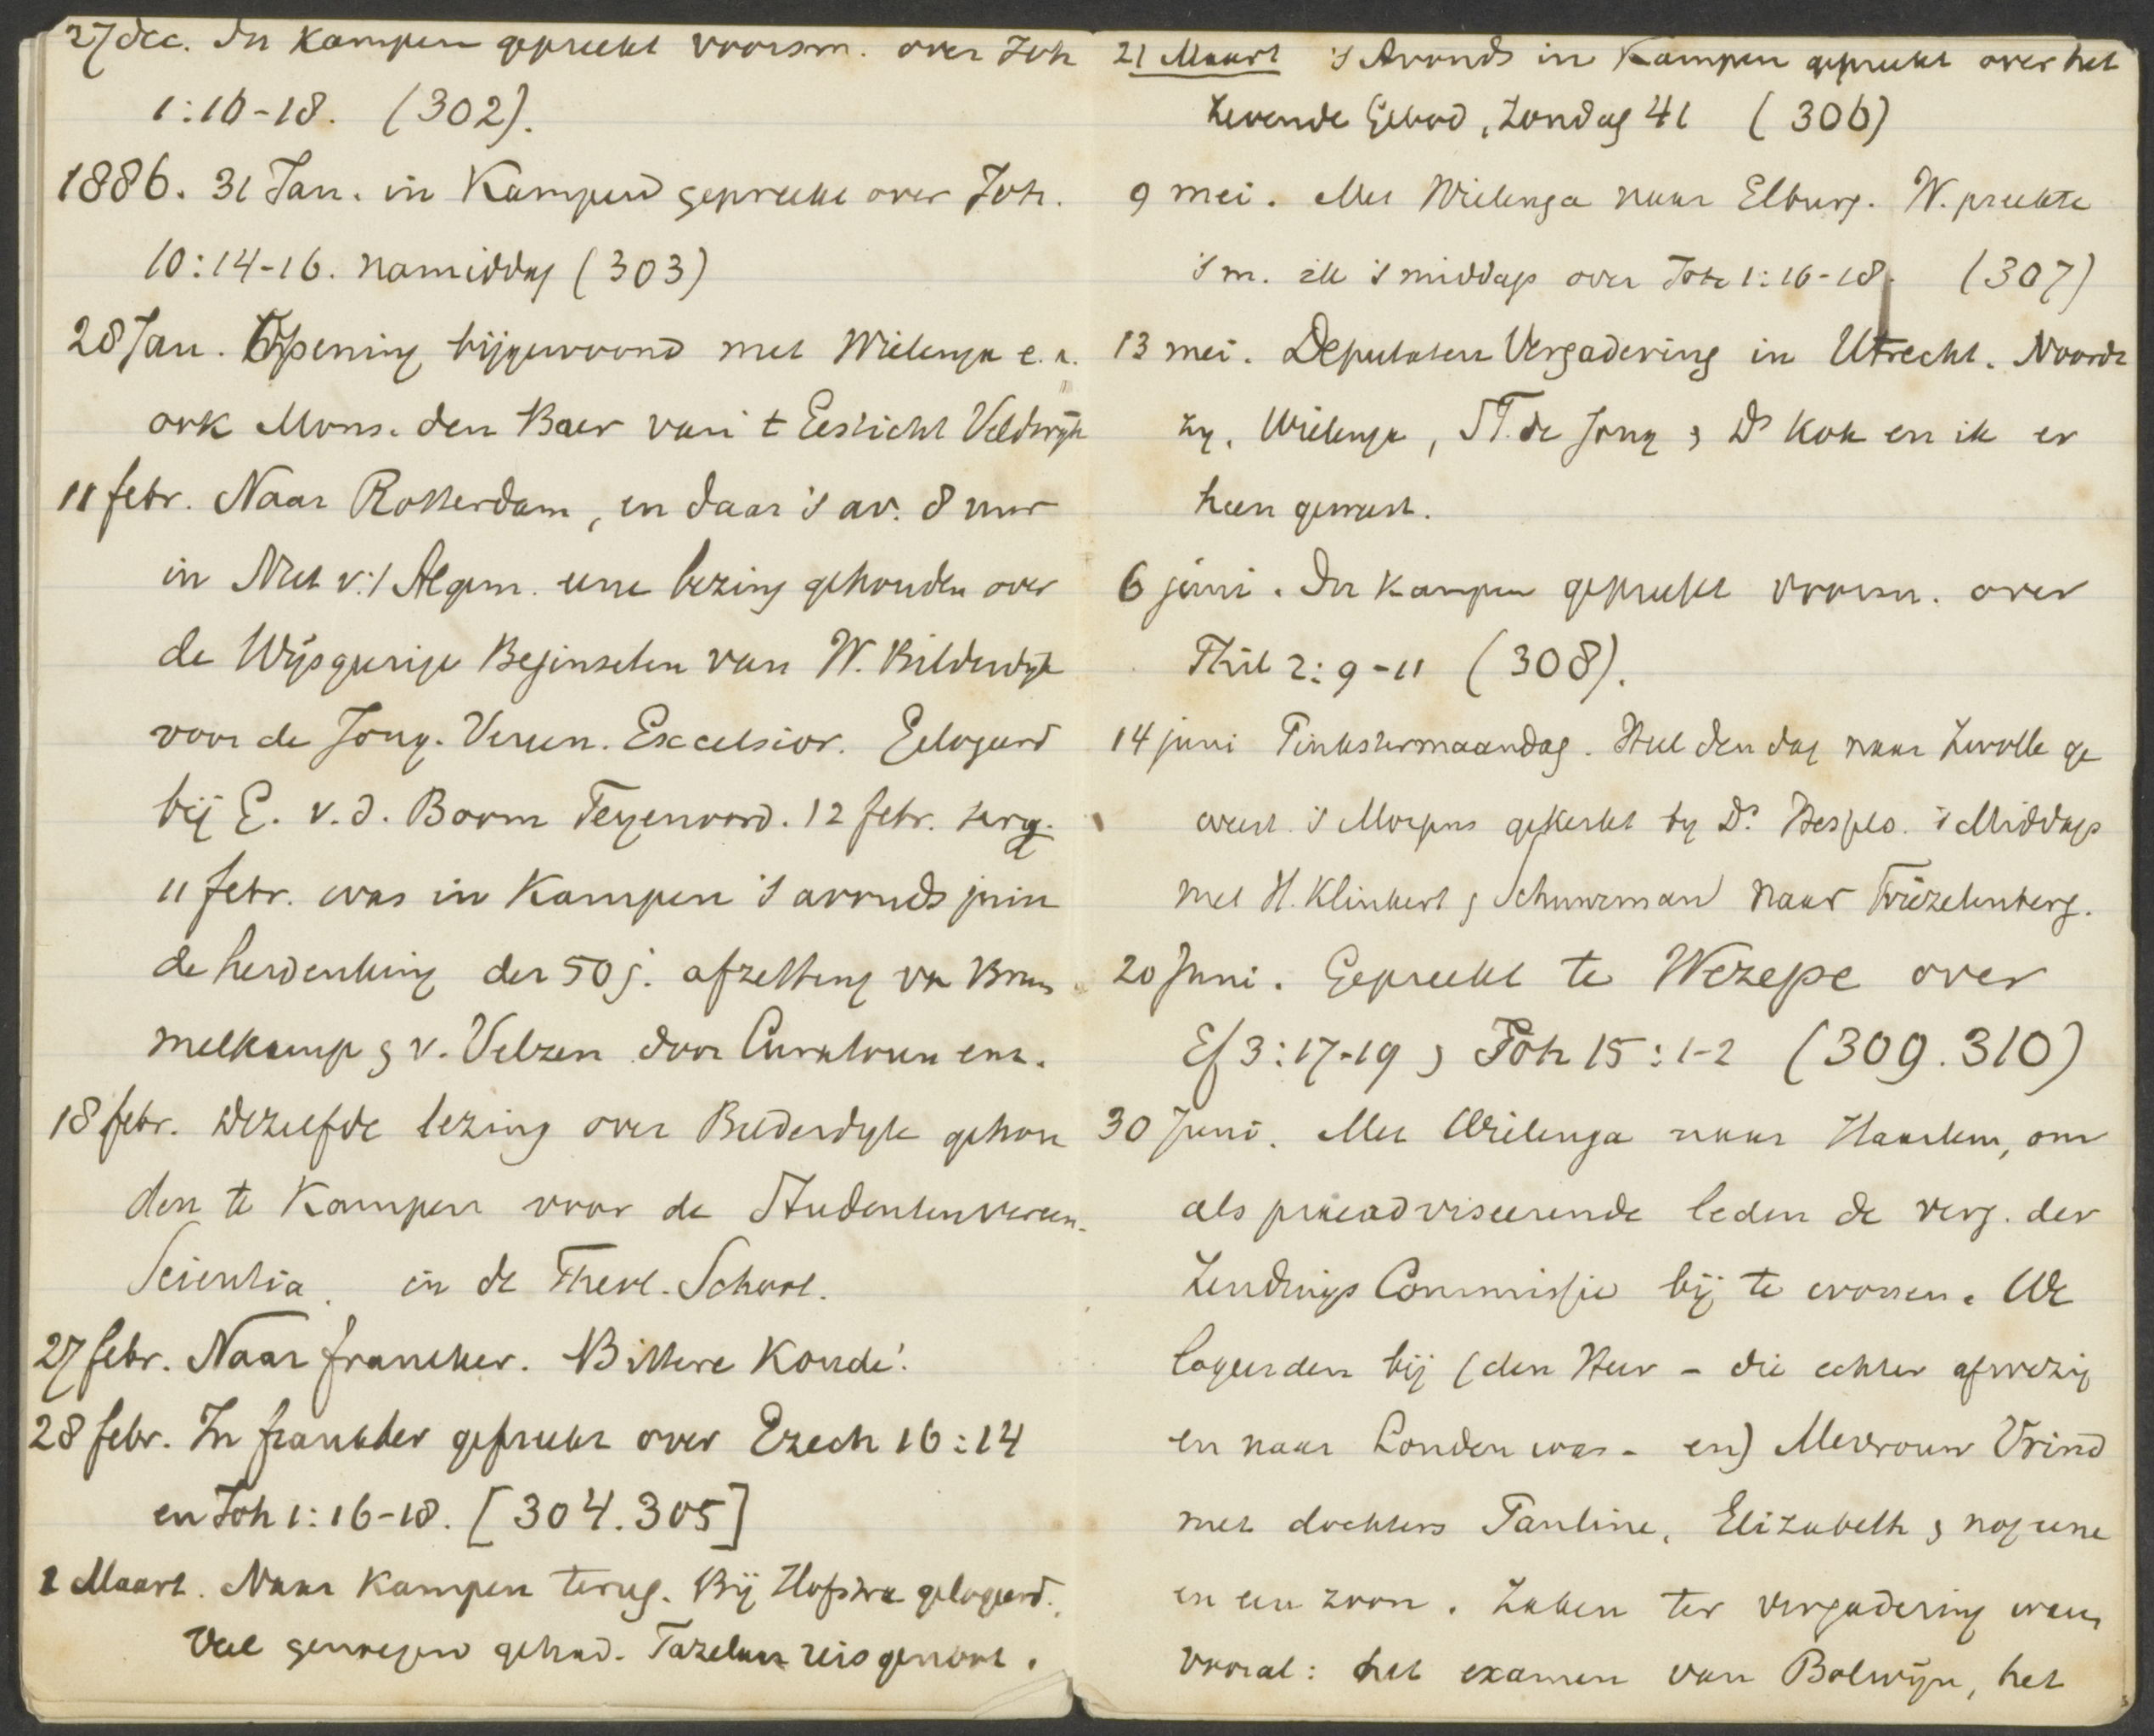 27 dec. In Kampen gepreekt voorm. over Joh
1:16-18. (302).
1886. 31 Jan. in Kampen gepreekt over Joh.
10:14-16. namiddag (303)
28 Jan. Opening bijgewoond met Wielenga e.a.
ook Mons. den Boer van 't Gesticht Veldwijk
11 febr. Naar Rotterdam, en daar 's av. 8 uur
in Nut v. 't Algem. eene lezing gehouden over
de Wijsgeerige Beginselen van W. Bilderdijk
voor de Jong. Vereen. Excelsior. Gelogeerd
bij E. v. d. Boom Feyenoord. 12 febr. terug.
11 febr. was in Kampen 's avonds juin
de herdenking der 50 j. afzetting van Brum
melkamp & v. Velzen door Curatoren enz.
18 febr. Dezelfde lezing over Bilderdyk gehou
den te Kampen voor de Studentenvereen.
Scientia in de Theol. School.
27 febr. Naar franeker. Bittere Koude!
28 febr. In franeker gepreekt over Ezech 16:14
en Joh 1:16-18. [304.305]
1 Maart. Naar Kampen terug. Bij Hofstra gelogeerd.
Veel genoegen gehad. Tazelaar reisgenoot.
21 Maart 's Avonds in Kampen gepreekt over het
Zevende Gebod, Zondag 41 (306)
9 mei. Met Wielenga naar Elburg. W. preekte
's m. ik 's middags over Joh 1:16-18. (307)
13 mei. Deputaten Vergadering in Utrecht. Noordt
zy, Wielenga, T. de Jong & Ds Kok en ik er
heen geweest.
6 juni. In Kampen gepreekt voorm. over
Phil 2:9-11 (308).
14 juni Pinkstermaandag. Heel den dag naar Zwolle ge
weest. 's Morgens gekerkt by Ds. Hesselo. 's Middags
met H. Klinkert & Schuurman naar Friezelenberg.
20 Juni. Gepreekt te Wezepe over
Ef 3:17-19 & Joh 15:1-2 (309.310)
30 Juni. Met Wielenga naar Haarlem, om
als praeadviseerende leden de verg. der
Zendings Commissie bij te wonen. We
logeerden bij (den Heer - die echter afwezig
en naar Londen was - en) Mevrouw Vrind
met dochters Pauline, Elizabeth & nog eene
en een zoon. Zaken ter vergadering waren
vooral: het examen van Bolwijn, het